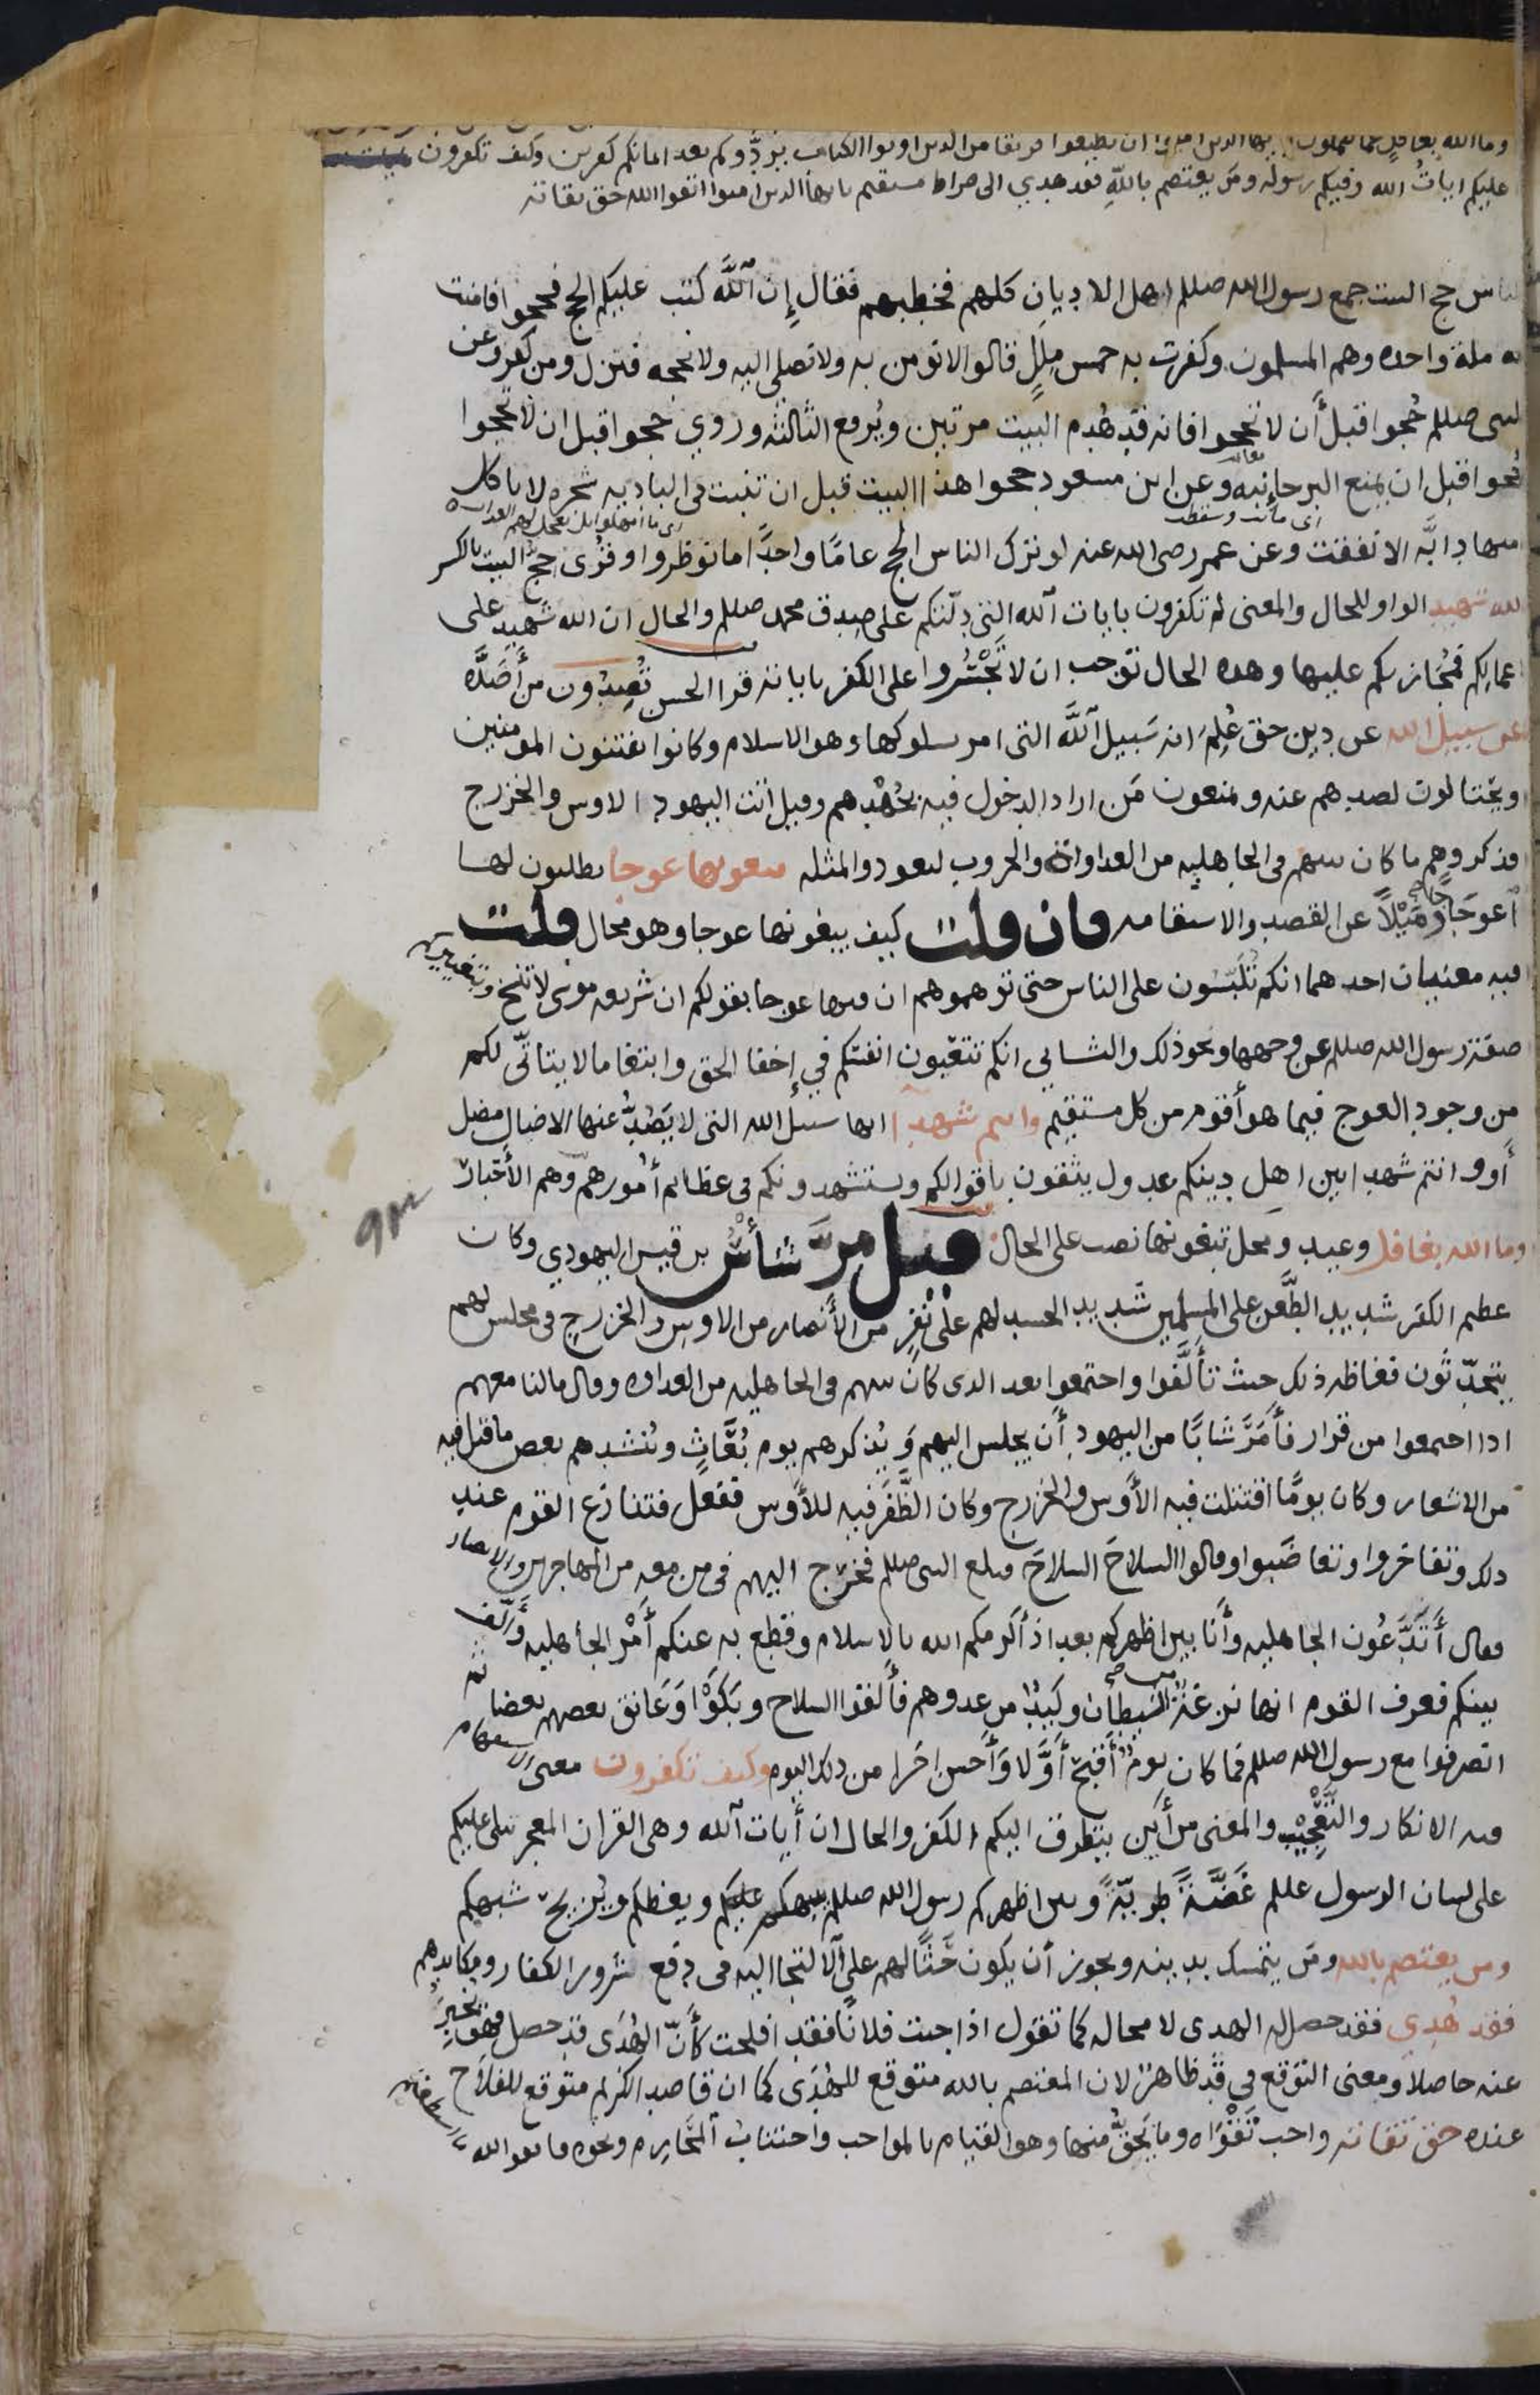 وما الله بغافل عما تعملون يايها الذين امنوا ان تطيعوا فريقا من الذين اوتوا الكتاب يردوكم بعد ايمانكم كفرين وكيف تكفرون
عليكم ايات الله وفيكم رسوله ومن يعتصم بالله فقد هدي الى صراط مستقيم يايها الذين امنوا اتقوا الله حق تقاته
الناس حج البيت جمع رسول الله صللم اهل الاديان كلهم فخطبهم فقال إن الله كتب عليكم الحج فحجوا فامنت
به ملة واحده وهم المسلمون وكفرت به خمس ملل قالوا لا نومن به ولا نصلي اليه ولا نحجه فنزل ومن كفر وعن
النبي صللم حُجوا قبل أن لا تحجوا فانه قد هُدم البيت مرتين ويُرفع الثالثه وروي حجوا قبل ان لا تحجوا
حُجوا قبل ان يمنع البر جانبه وعن ابن مسعود حجوا هذا البيت قبل ان تنبت في الباديه شجره لا ياكل
اى ماتت وسقطت
اى ما امهلوا بل يعجل لهم العذاب
منها دابَّه الا نفقت وعن عمر رضى الله عنه لو ترك الناس الحج عامًا واحدًا ما نوظروا وقرى حج البيت بالكسر
والله شهيد الواو للحال والمعنى لم تكفرون بايات الله التي دلّتكم على صدق محمد صللم والحال ان الله شهيد على
اعمالكم فمُجازيكم عليها وهذه الحال توجب ان لا تَجْسُروا على الكفر باياته قرا الحسن تُصِدّون من أَصَدَّه
عن سبيل الله عن دين حق عُلِمَ انه سَبيل اللَّه التي امر بسلوكها وهو الاسلام وكانوا يفتنون المومنين
ويحتالون لصدهم عنه ويمنعون مَن اراد الدخول فيه بجُهْدهم وقيل أتت اليهود الاوس والخزرج
فذكروهم ما كان بينهم في الجاهليه من العداوات والحروب ليعودوا لمثله تبغونها عوجا تطلبون لها
اعوجاجًا ومَيْلاً عن القصد والاستقامه فان قلت كيف يبغونها عوجا وهو محال قلت
فيه معنيان احدهما انكم تُلَبّسون على الناس حتى توهموهم ان فيها عوجا بقولكم ان شريعه موسى لا تنسخ وبتغييركم
صفة رسول الله صللم عن وجهها ونحو ذلك والثاني انكم تتعبون انفسكم في إخفا الحق وابتغا ما لا يتاتّى لكم
من وجود العوج فيما هو أقوم من كل مستقيم وانتم شهدا انها سبيل الله التي لا يَصُدُّ عنها الا ضال مضل
أو وانتم شهدا بين اهل دينكم عدول يثقون باقوالكم ويستشهدونكم في عظائم أمورهم وهم الأحبار
وما الله بغافل وعيد ومحل تبغونها نصب على الحال قيل مرَّ شأس بن قيس اليهودي وكان
عظيم الكفر شديد الطَّعن على المسلمين شديد الحسد لهم على نفرٍ من الأنصار من الاوس والخزرج في مجلس لهم
يتحدّثون فغاظه ذلك حيث تألَّفوا واجتمعوا بعد الذي كان بينهم في الجاهليه من العداوه وقال ما لنا معهم
اذا اجتمعوا من قرار فأمَرَّ شابًّا من اليهود أن يجلس اليهم وَيُذكرهم يوم بُعَاثٍ وينشدهم بعض ما قيل فيه
من الاشعار وكان يومًا اقتتلت فيه الأوس والخزرج وكان الظَّفَر فيه للأوس ففعل فتنازع القوم عند
ذلك وتفاخروا وتغاضَبوا وقالوا السلاحَ السلاحَ فبلغ النبي صللم فخرج اليهم في من معه من المهاجرين والانصار
فقال أَتَدَّعُون الجاهليه وأَنا بين اظهركم بعد اذ أكرمكم الله بالاسلام وقطع به عنكم أمْر الجاهليه وأَلّف
بينكم فعرف القوم انها نزغة من الشيطان وكيدٌ من عدوهم فألقوا السلاح وبَكَوْا وَعَانق بعضهم بعضا ثم
انصرفوا مع رسول الله صللم فما كان يومٌ أَقبح أَوَّلا وَأَحسن اخرا من ذلك اليوم وكيف تكفرون معنى الاستفهام
فيه الانكار والتَّعجِيْب والمعنى من أَين يتطرق اليكم الكفر والحال ان أَيات الله وهي القران المعجز تتلى عليكم
على لسان الرسول عللم غَضَّةً طريّةً وبين اظهركم رسول الله صللم ينبهكم عليكم ويعظكم ويُزيح شبهكم
ومن يعتصم بالله ومَن يتمسك بدينه ويجوز أن يكون حَثًّا لهم على الالتجا اليه في دفع شرور الكفار ومكايدهم
فقد هُدِي فقد حصل له الهدى لا محاله كما تقول اذا جيت فلانًا فقد افلحت كَأَنّ الهُدَى قد حصل فهو يخبِرُ
عنه حاصلا ومعنى التوقع في قد ظاهر لان المعتصم بالله متوقع للهُدَى كما ان قاصد الكريم متوقع للفلاح
عنده حق تقاته واجب تَقْوَاه وما يَحقُّ منها وهو القيام بالمواجب واجتناب المَحَارِم ونحوه فاتقوا الله ما استطعتم